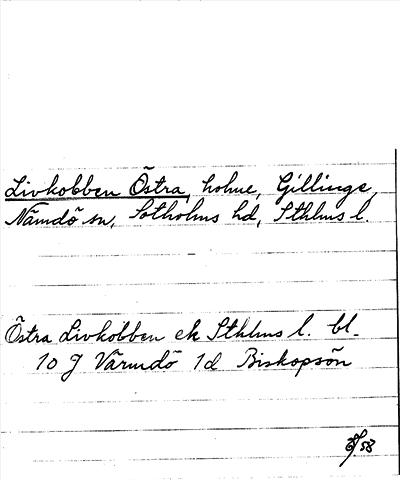 Livkobben Östra, holme, Gillinge,
Nämdö sn, Sotholms hd, Sthlms l.
Östra Livkobben ek Sthlms l. bl.
10 J Värmdö 1d Biskopsön
58